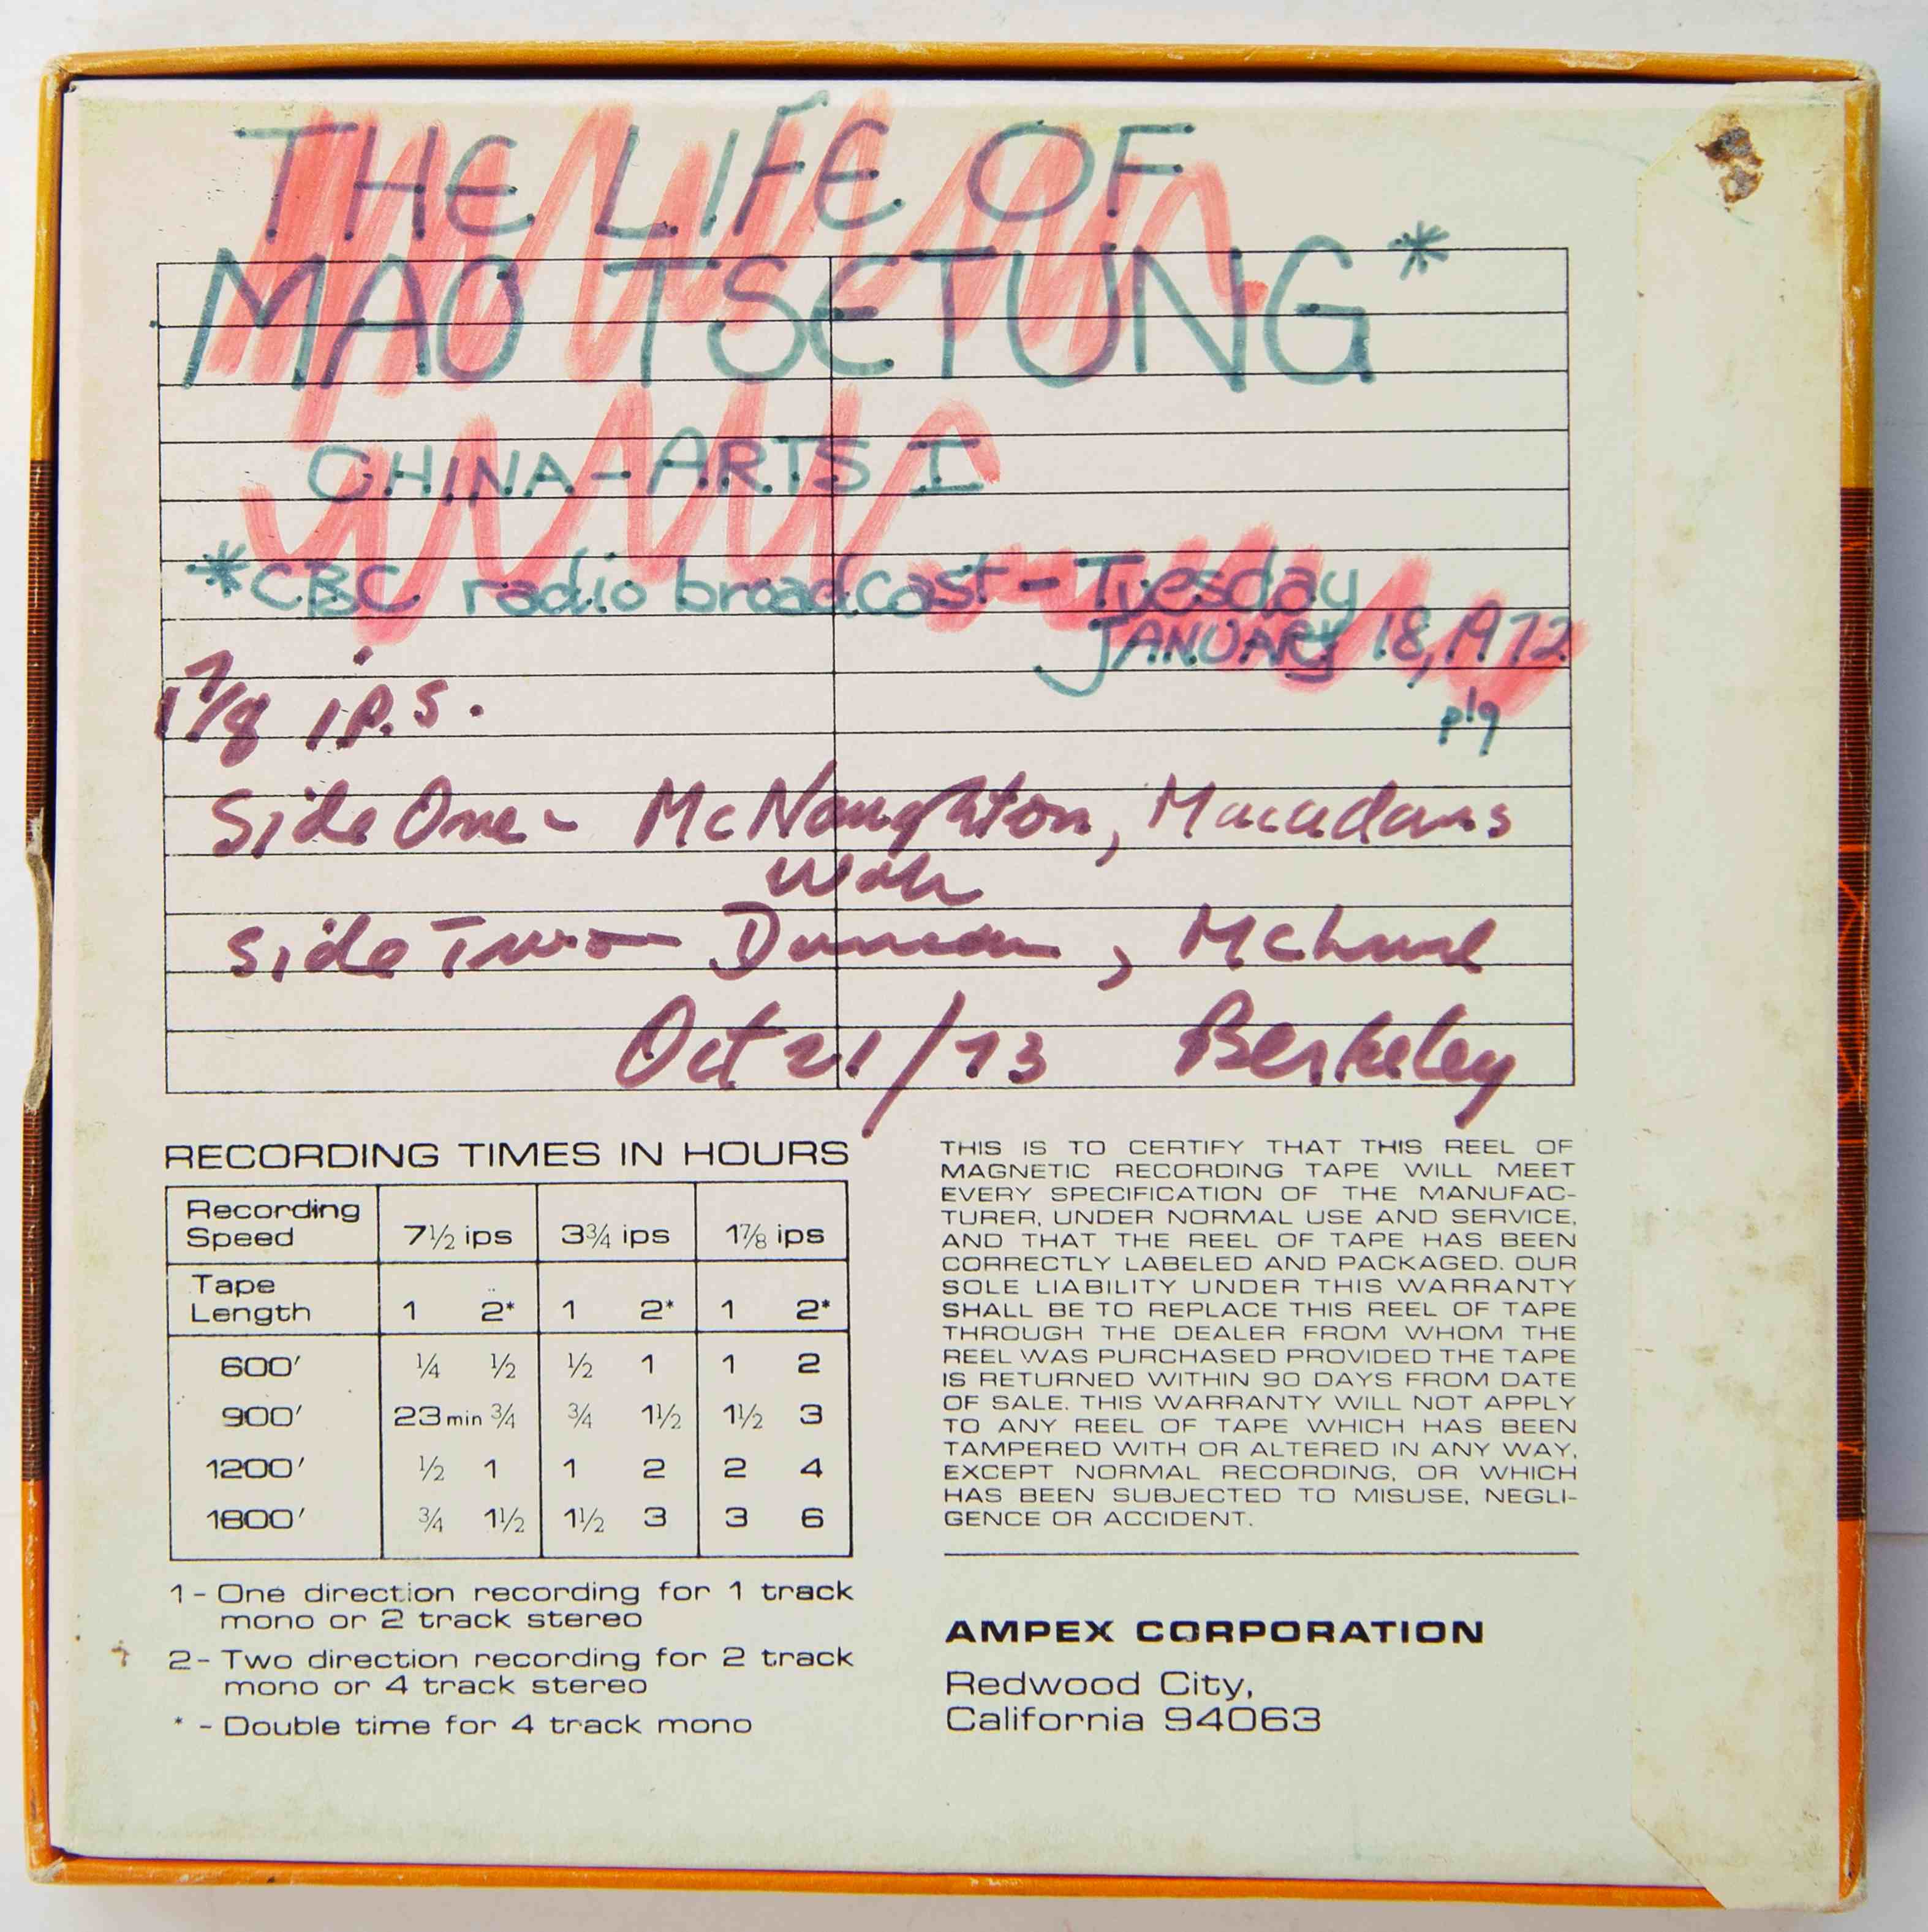 THE LIFE OF
MAO TSETUNG*
CHINA-ARTS I
*CBC radio broadcast - Tuesday
JANUARY 18, 1972
1 7/8 i.p.s.
Side One - McNaughton, Macadams
with
Side Two - Duncan, McClure
Oct 21/73 Berkeley
RECORDING TIMES IN HOURS
Recording Speed 7½ ips 3¾ ips 1⅞ ips
Tape Length 1 2* 1 2* 1 2*
600' ¼ ½ ½ 1 1 2
900' 23 min ¾ ¾ 1½ 1½ 3
1200' ½ 1 1 2 2 4
1800' ¾ 1½ 1½ 3 3 6
1 - One direction recording for 1 track
mono or 2 track stereo
2 - Two direction recording for 2 track
mono or 4 track stereo
* - Double time for 4 track mono
THIS IS TO CERTIFY THAT THIS REEL OF
MAGNETIC RECORDING TAPE WILL MEET
EVERY SPECIFICATION OF THE MANUFAC-
TURER, UNDER NORMAL USE AND SERVICE,
AND THAT THE REEL OF TAPE HAS BEEN
CORRECTLY LABELED AND PACKAGED. OUR
SOLE LIABILITY UNDER THIS WARRANTY
SHALL BE TO REPLACE THIS REEL OF TAPE
THROUGH THE DEALER FROM WHOM THE
REEL WAS PURCHASED PROVIDED THE TAPE
IS RETURNED WITHIN 90 DAYS FROM DATE
OF SALE. THIS WARRANTY WILL NOT APPLY
TO ANY REEL OF TAPE WHICH HAS BEEN
TAMPERED WITH OR ALTERED IN ANY WAY,
EXCEPT NORMAL RECORDING, OR WHICH
HAS BEEN SUBJECTED TO MISUSE, NEGLI-
GENCE OR ACCIDENT.
AMPEX CORPORATION
Redwood City,
California 94063